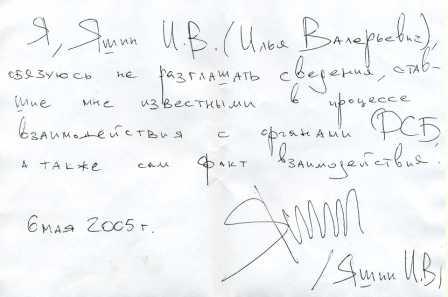 Я, Яшин И.В. (Илья Валерьевич),
обязуюсь не разглашать сведения, став-
шие мне известными в процессе
взаимодействия с органами ФСБ,
а также сам факт взаимодействия.
6 мая 2005 г.
Яшин
/Яшин И.В/